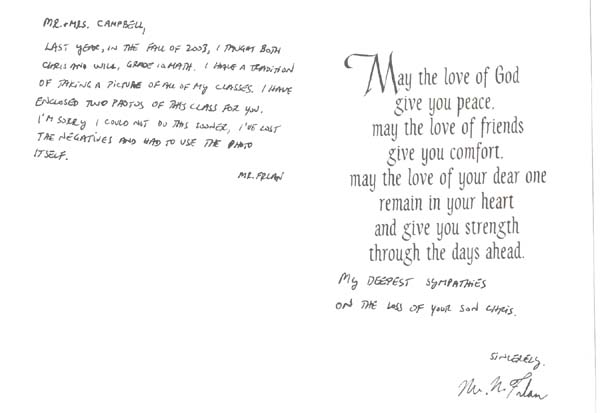 MR. & MRS. CAMPBELL,
LAST YEAR, IN THE FALL OF 2003, I TAUGHT BOTH
CHRIS AND WILL, GRADE 10 MATH. I HAVE A TRADITION
OF TAKING A PICTURE OF ALL OF MY CLASSES. I HAVE
ENCLOSED TWO PHOTOS OF THIS CLASS FOR YOU.
I'M SORRY I COULD NOT DO THIS SOONER, I'VE LOST
THE NEGATIVES AND HAD TO USE THE PHOTO
ITSELF.
MR. FRLAN
May the love of God
give you peace.
may the love of friends
give you comfort.
may the love of your dear one
remain in your heart
and give you strength
through the days ahead.
My DEEPEST SYMPATHIES
ON THE LOSS OF YOUR SON CHRIS.
SINCERELY.
Mr. N. Frlan